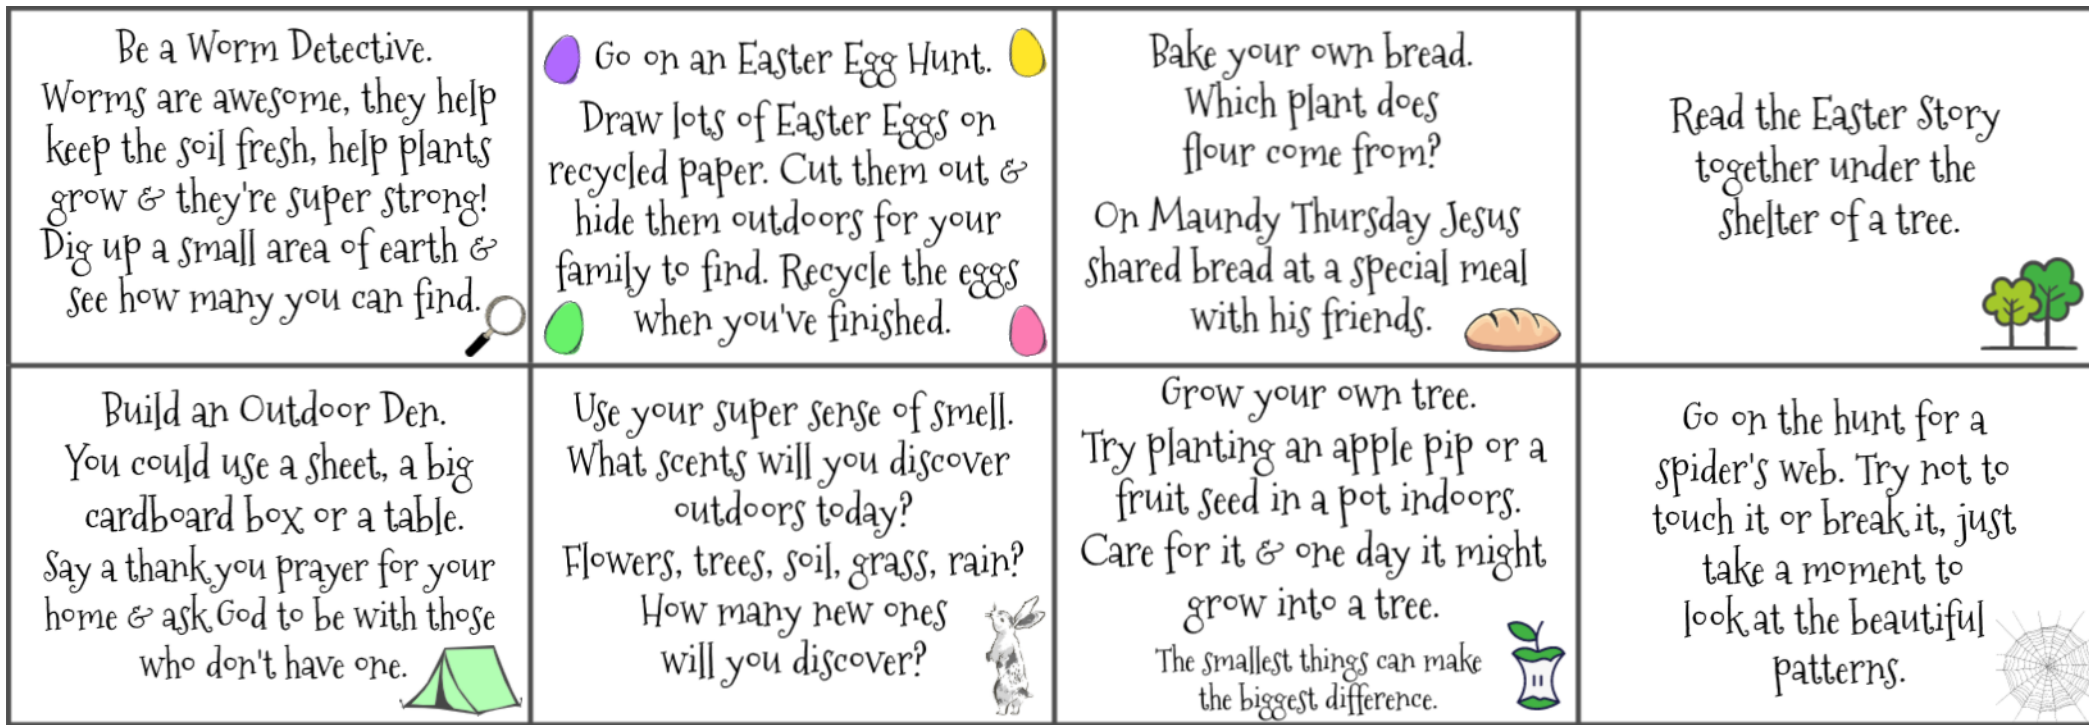 Be a Worm Detective.
Worms are awesome, they help
keep the soil fresh, help plants
grow & they're super strong!
Dig up a small area of earth &
see how many you can find.
Go on an Easter Egg Hunt.
Draw lots of Easter Eggs on
recycled paper. Cut them out &
hide them outdoors for your
family to find. Recycle the eggs
when you've finished.
Bake your own bread.
Which plant does
flour come from?
On Maundy Thursday Jesus
shared bread at a special meal
with his friends.
Read the Easter Story
together under the
shelter of a tree.
Build an Outdoor Den.
You could use a sheet, a big
cardboard box or a table.
Say a thank you prayer for your
home & ask God to be with those
who don't have one.
Use your super sense of smell.
What scents will you discover
outdoors today?
Flowers, trees, soil, grass, rain?
How many new ones
will you discover?
Grow your own tree.
Try planting an apple pip or a
fruit seed in a pot indoors.
Care for it & one day it might
grow into a tree.
The smallest things can make
the biggest difference.
Go on the hunt for a
spider's web. Try not to
touch it or break it, just
take a moment to
look at the beautiful
patterns.